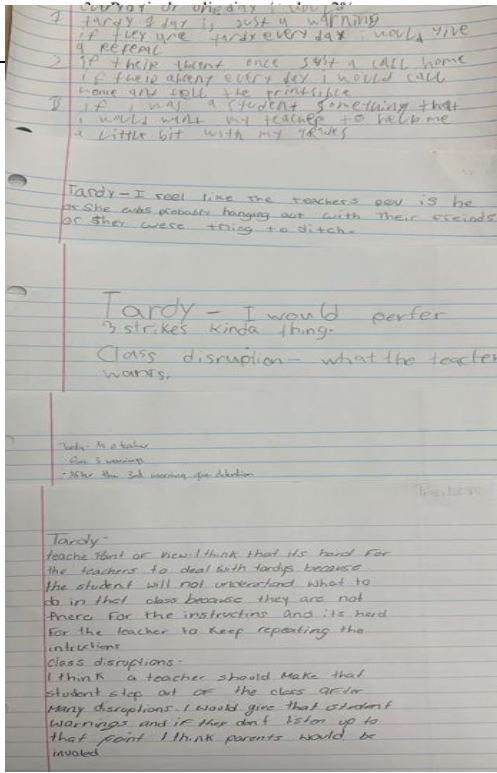 1 tardy 1 day is just a warning
if they are tardy every day i would give
a referal
2 if their absent once just a call home
if their absent every day i would call
home and tell the
if i was a student something that
i would want my teacher to help me
a little bit with my
Tardy - I feel like the teachers pov is he
or she was probably hanging out with their freinds
or they were to ditch.
Tardy - I would perfer
3 strikes kinda thing.
Class disruption - what the teacher
wants.
Tardy - As a teacher
Give 3 warnings
After the 3rd warning give detention
Tardy -
teache Point of view. I think that its hard For
the teachers to deal with tardys because
the student will not understand what to
do in that class because they are not
there For the instructins and its hard
For the teacher to keep repeating the
intructions
Class disruptions -
I think a teacher should make that
student step out of the class after
Many disruptions. I would give that student
warnings and if they dont listen up to
that point I think parents would be
involed